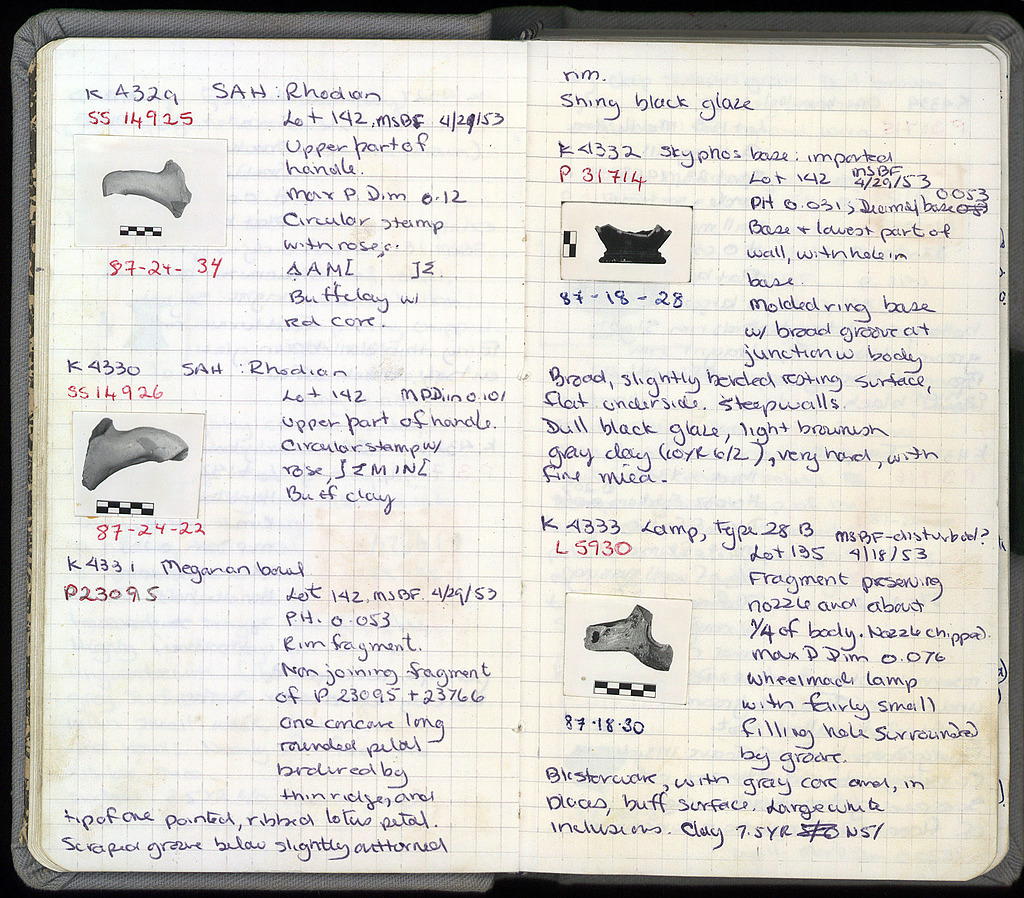 K 4329 SAH : Rhodian
SS 14925
Lot 142, MSBF 4/29/53
Upper part of
handle.
Max P. Dim 0.12
Circular stamp
with rose;
ΔAM[ ]Σ.
Buff clay w/
red core.
87-24-34
K 4330 SAH : Rhodian
SS 14926
Lot 142 MPDim 0.101
Upper part of handle.
Circular stamp w/
rose, ]ΣMIN[
Buff clay
87-24-22
K 4331 Megarian bowl
P23095
Lot 142, MSBF. 4/29/53
PH. 0.053
Rim fragment.
Non joining fragment
of P 23095 + 23766
One concave long
rounded petal
bordered by
thin ridge, and
tip of one pointed, ribbed lotus petal.
Scraped groove below slightly outturned
rim.
Shiny black glaze
K 4332 Skyphos base: imported
P 31714
Lot 142 MSBF 4/29/53
PH 0.031; base 0.053
Base + lowest part of
wall, with hole in
base.
Molded ring base
w/ broad groove at
junction w body
87-18-28
Broad, slightly beveled resting surface,
flat underside. Steep walls.
Dull black glaze, light brownish
gray clay (10YR 6/2), very hard, with
fine mica.
K 4333 Lamp, Type 28 B MSBF-disturbed?
L 5930
Lot 135 4/18/53
Fragment preserving
nozzle and about
1/4 of body. Nozzle chipped.
Max P Dim 0.076
Wheelmade lamp
with fairly small
filling hole surrounded
by groove.
87-18-30
Blisterware, with gray core and, in
places, buff surface. Large white
inclusions. Clay 7.5YR N5/